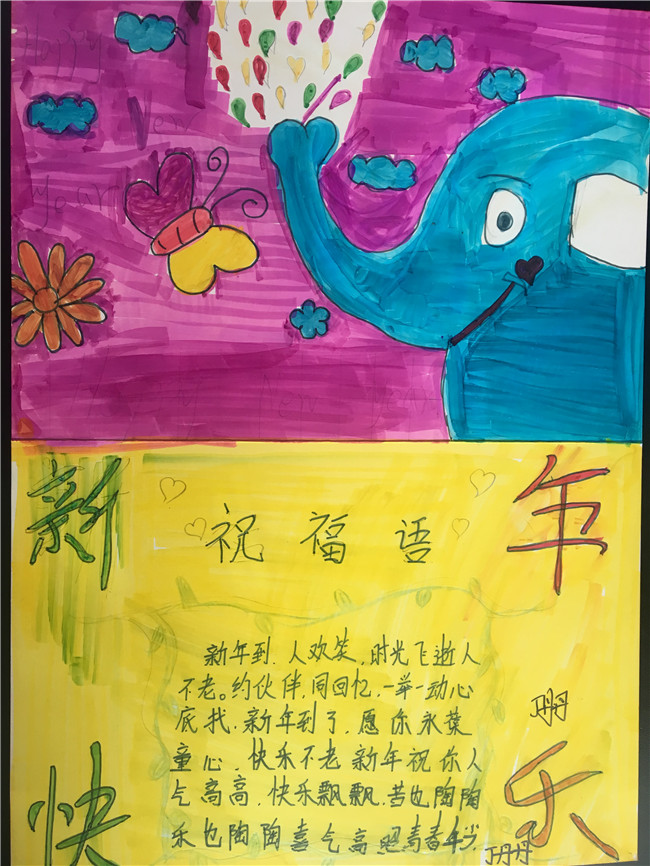 Happy
Year
新 年
祝福语
新年到.人欢笑,时光飞逝人
不老。约伙伴,同回忆,一举一动心
底找.新年到了,愿你永葆
童心.快乐不老新年祝你人
气高高.快乐飘飘.苦也陶陶
乐也陶陶喜气高照青春年少
快 乐